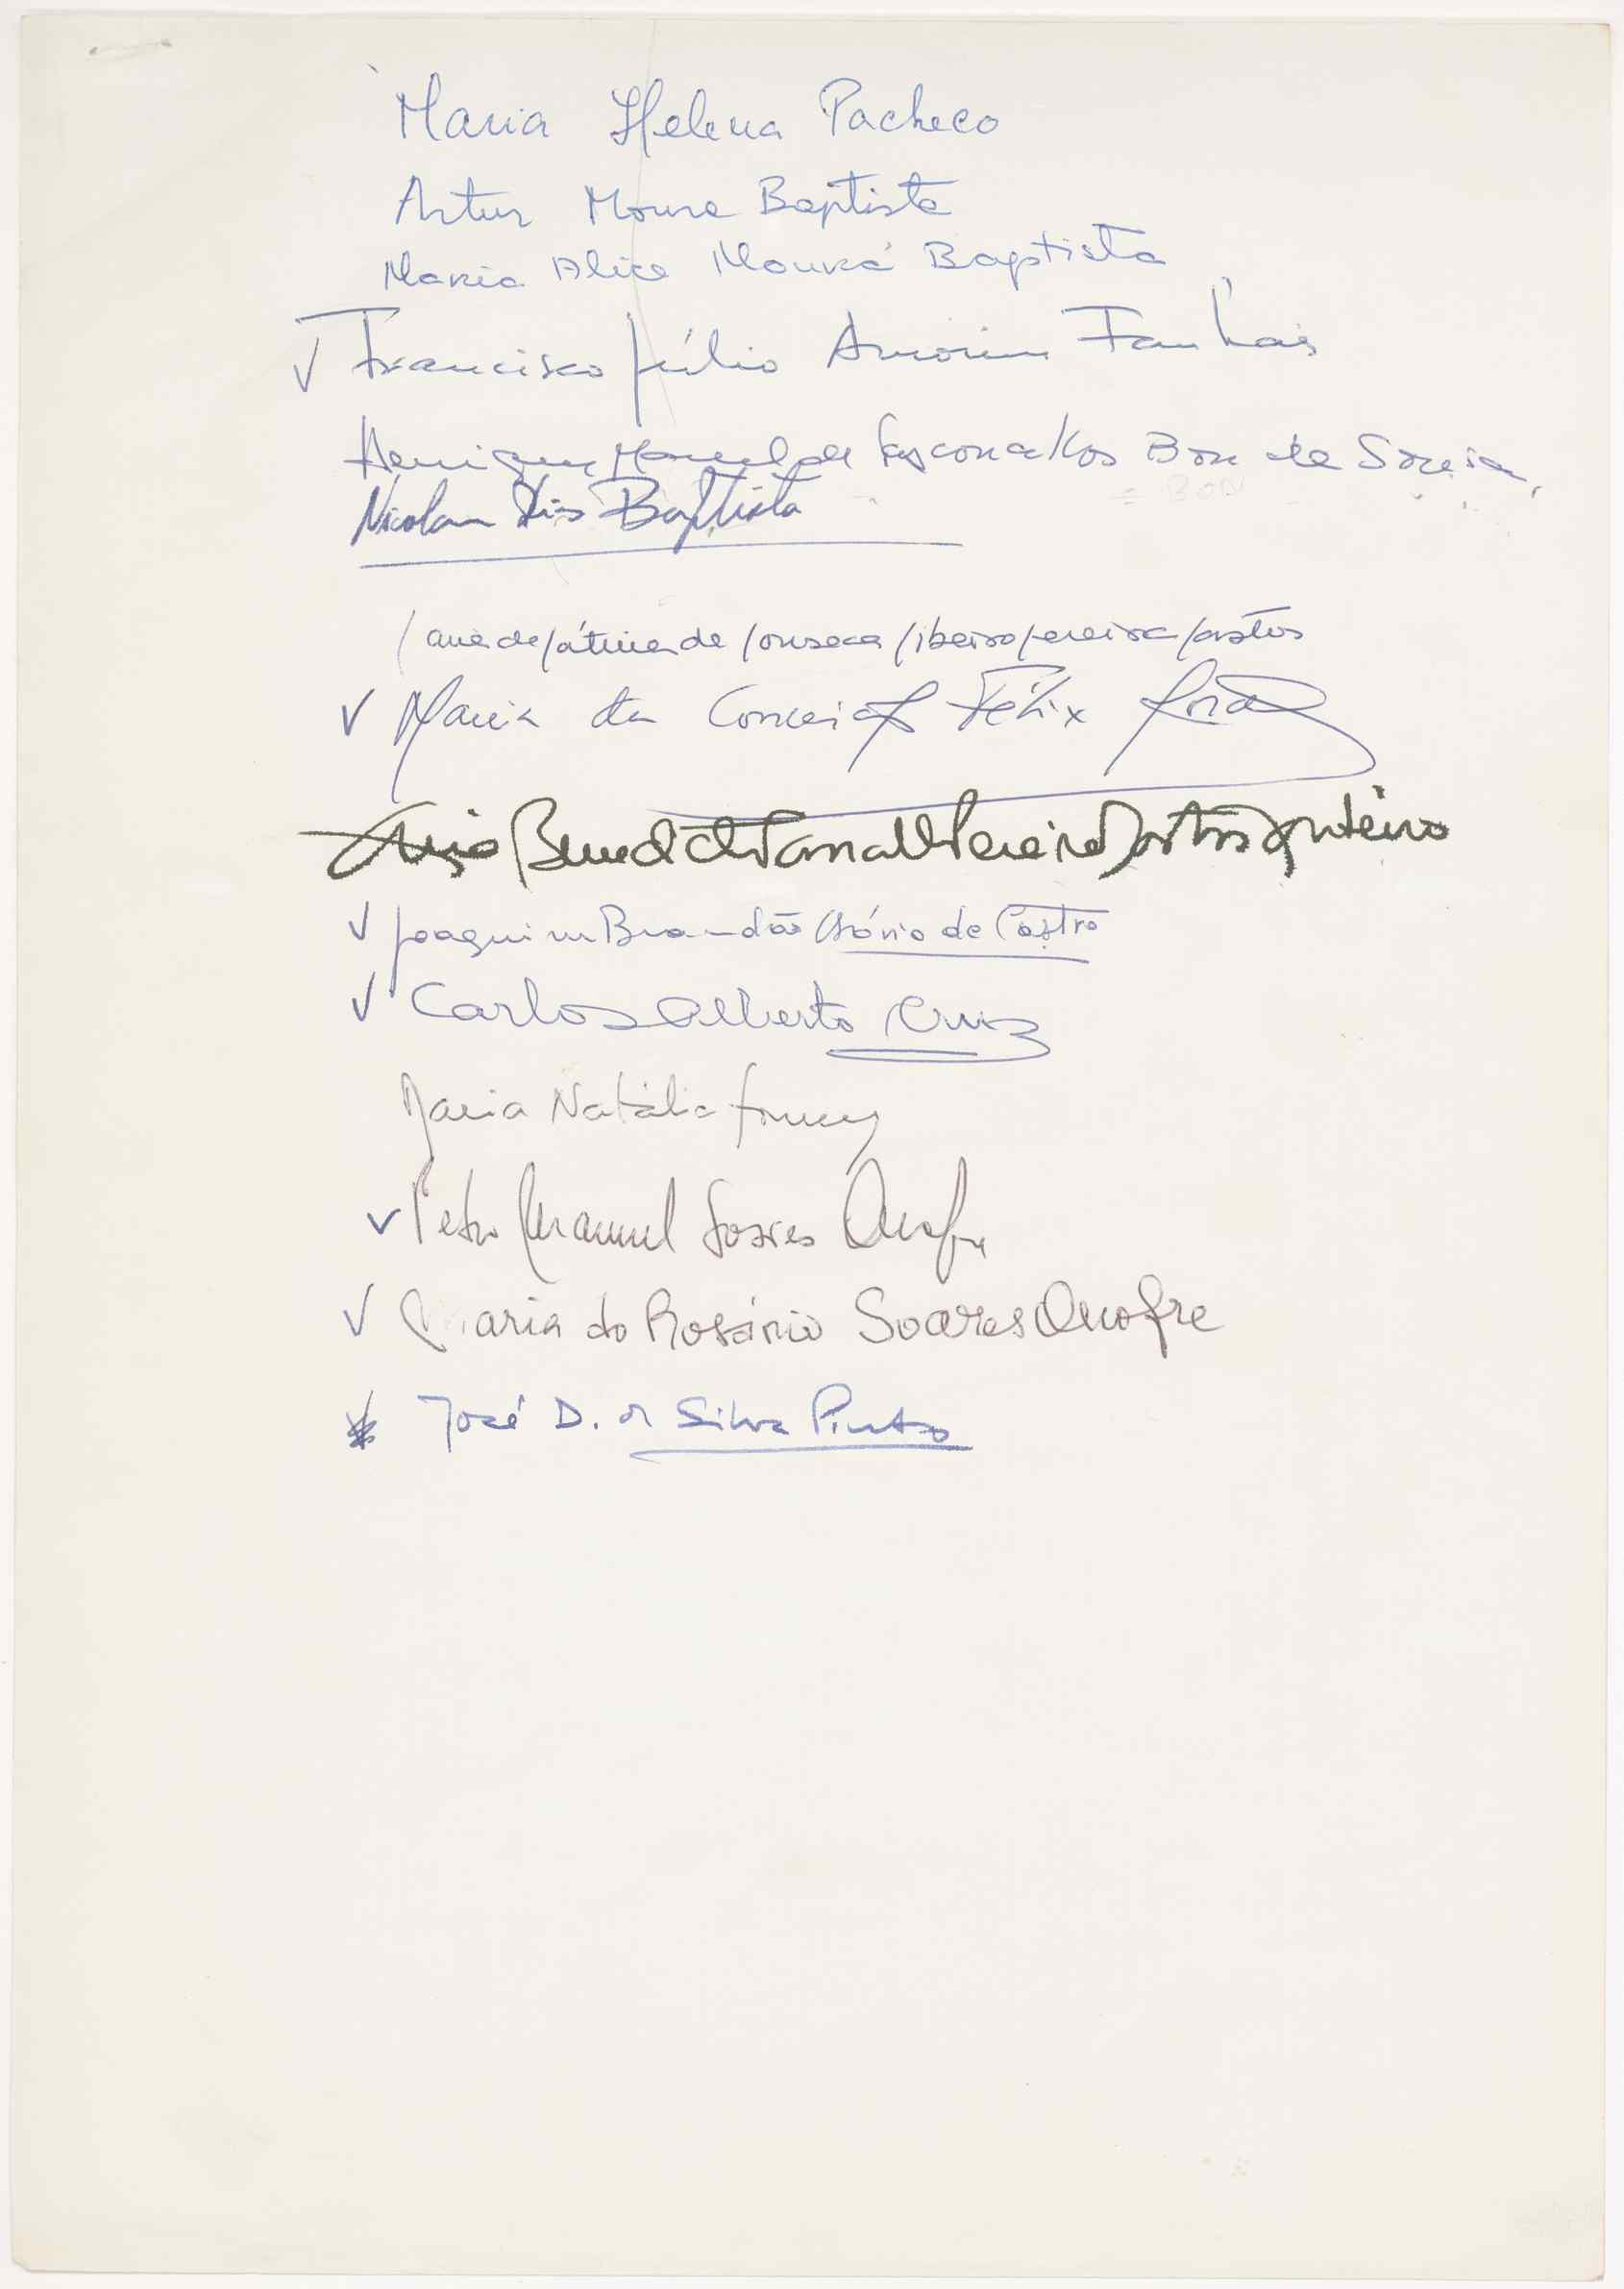 Maria Helena Pacheco
Artur Moura Baptista
Maria Alice Moura Baptista
√ Francisco Júlio Amorim Fanhais
Henrique Manuel de Vasconcellos Bon de Sousa
Nicolau Dias Baptista
ana de fátima de fonseca ribeiro pereira bastos
√ Maria da Conceição Félix
Pereira Bastos Monteiro
√ Joaquim Brandão Osório de Castro
√ Carlos Alberto Cruz
Maria Natália
√ Pedro Manuel Soares Onofre
√ Maria do Rosário Soares Onofre
José D. da Silva Pinto